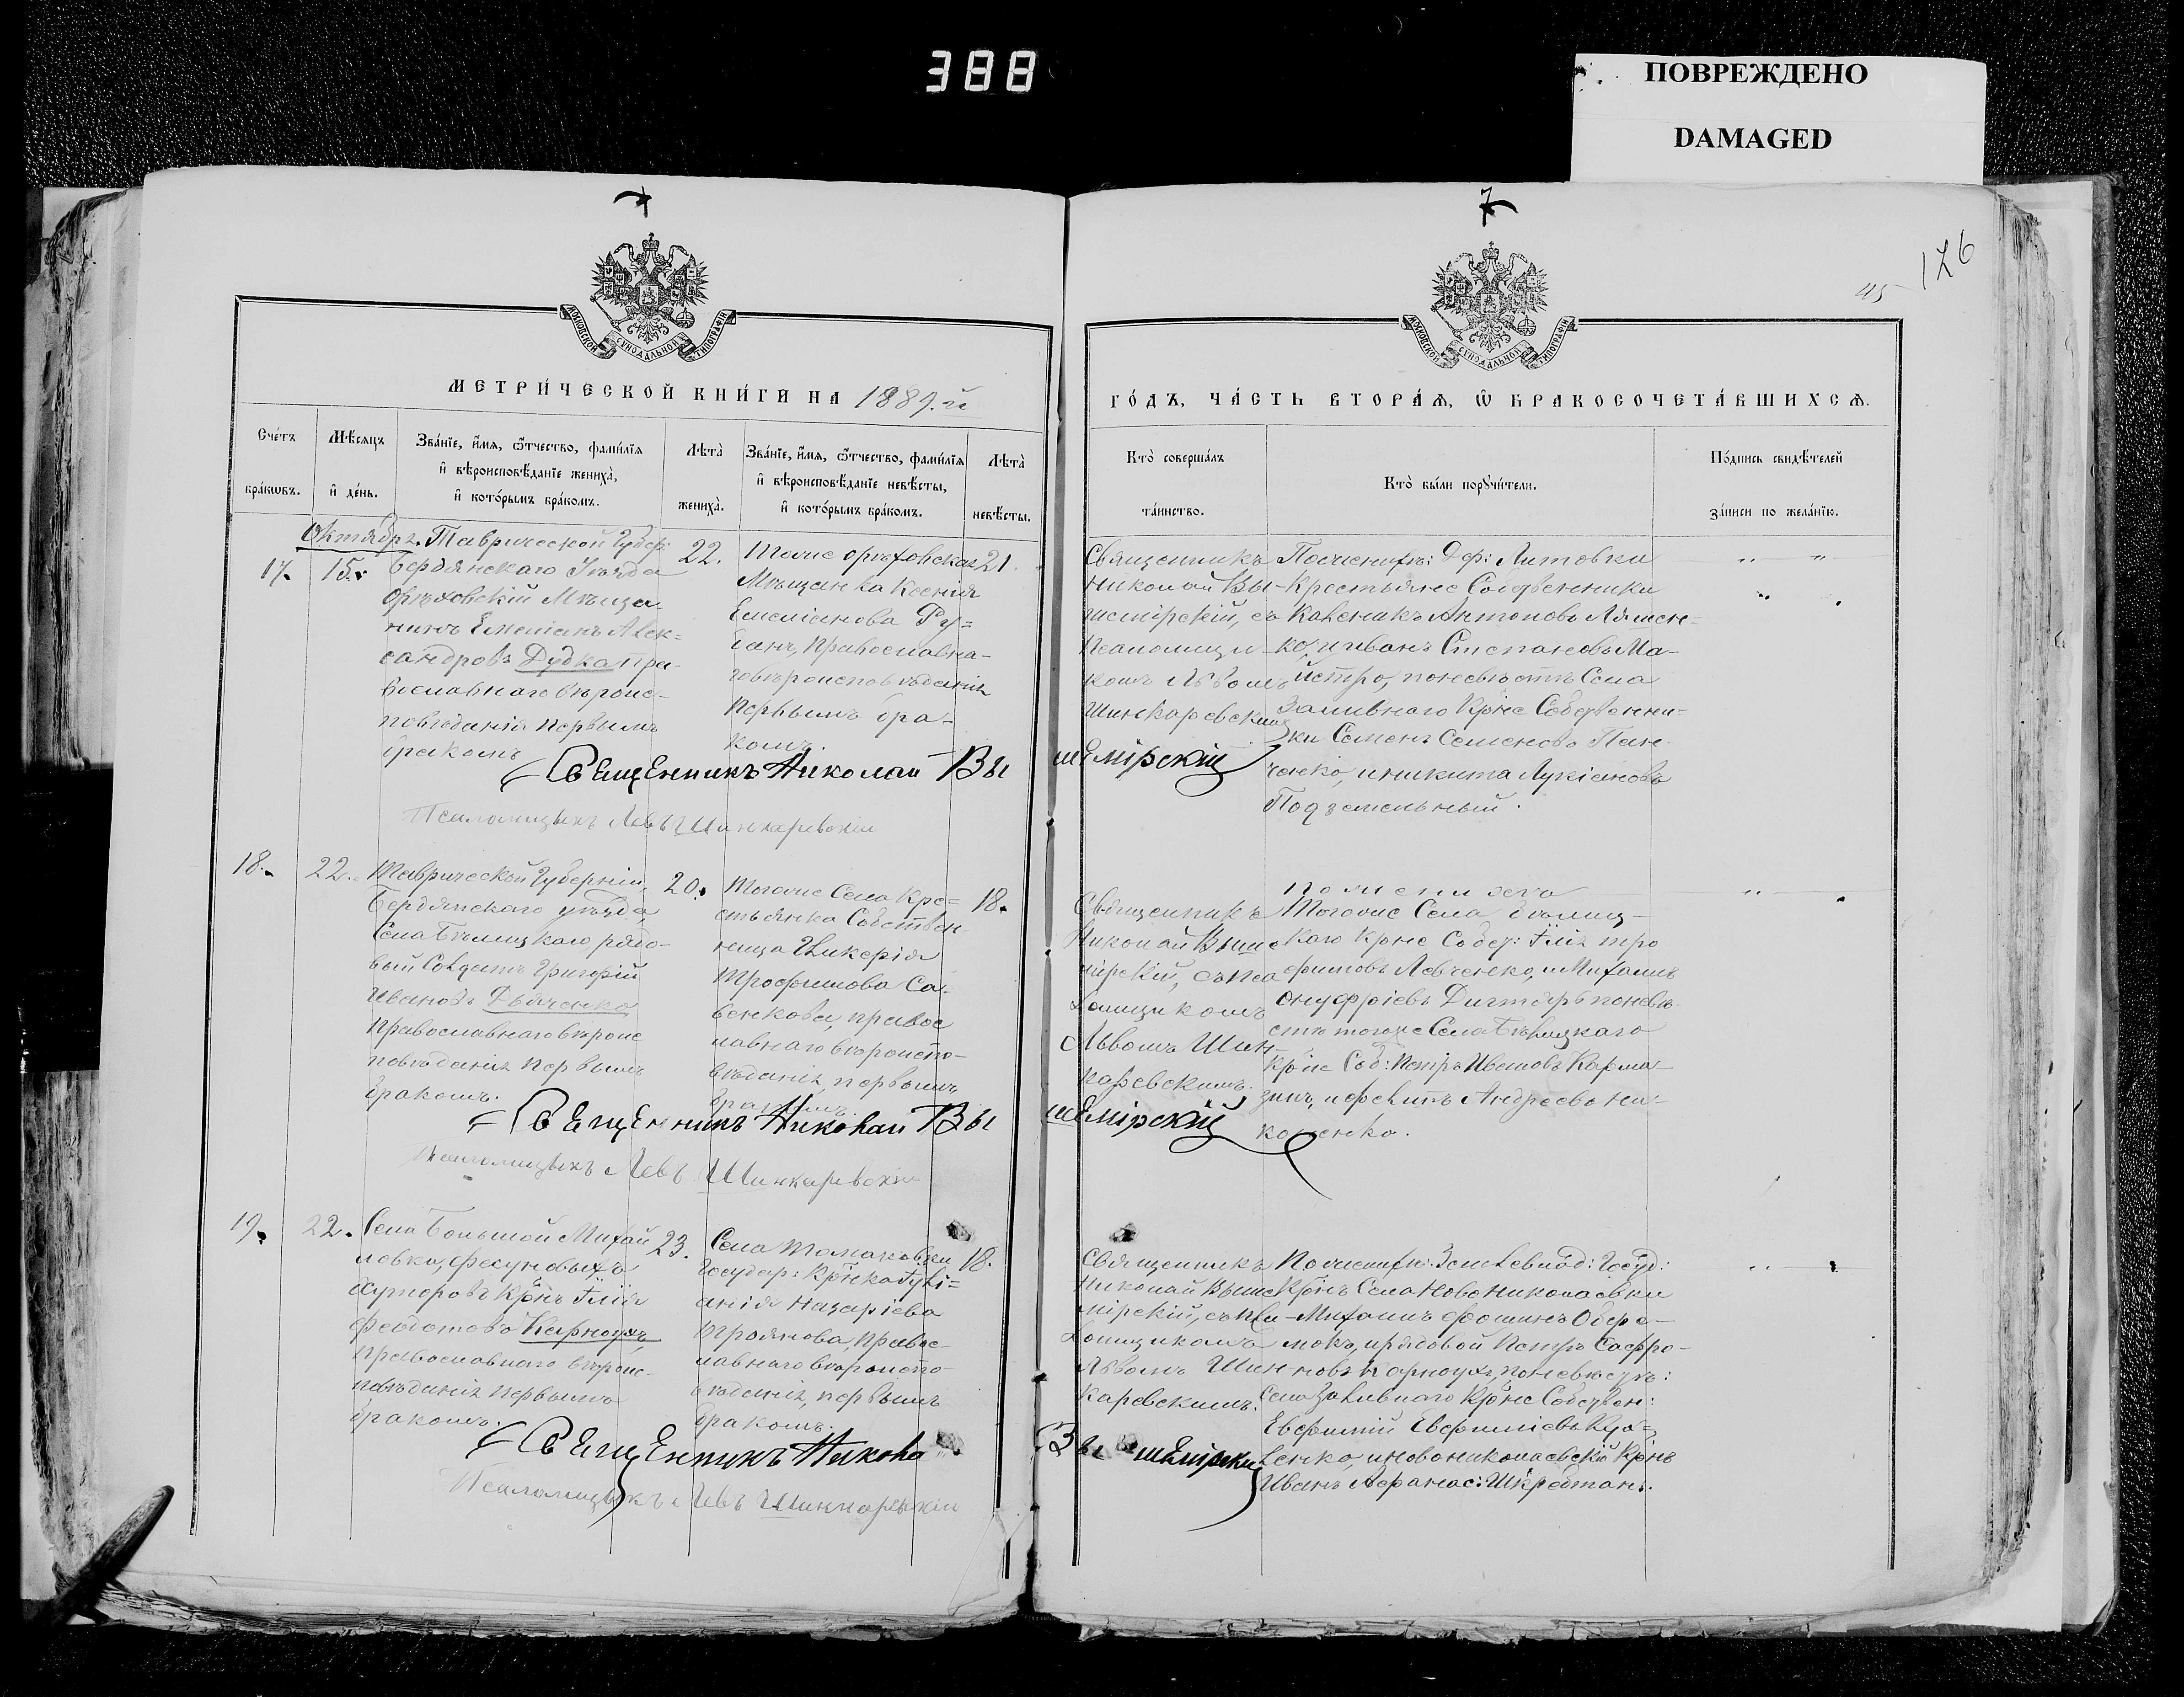 388
ПОВРЕЖДЕНО
DAMAGED
7
7
126
45
МОСКОВСКОЙ СѴНОДАЛЬНОЙ ТИПОГРАФІИ
МОСКОВСКОЙ СѴНОДАЛЬНОЙ ТИПОГРАФІИ
МЕТРИ́ЧЕСКОЙ КНИ́ГИ НА 1889.й
ГО́ДЪ, ЧА́СТЬ ВТОРА́Ѧ, Ѡ БРАКОСОЧЕТА́ВШИХСѦ.
Сче́тъ бра́кѡвъ.
Мѣ́сяцъ и҆ де́нь.
Зва́нїе, и҆́мѧ, ѻ҆́тчество, фамѝлїѧ
и҆ вѣроисповѣ́данїе жениха̀,
и҆ кото́рымъ бра́комъ.
Лѣ́та̀ жениха̀.
Зва́нїе, и҆́мѧ, ѻ҆́тчество, фами́лїѧ
и҆ вѣроисповѣ́данїе невѣ́сты,
и҆ кото́рымъ бра́комъ.
Лѣ́та̀ невѣ́сты.
Кто̀ соверша́лъ та́инство.
Кто̀ бы́ли порꙋчи́тели.
По́дпись свидѣ́телей за́писи по жела́нїю.
Октябрь.
17.
15.
Таврической Губер:
Бердянскаго Уѣзда
Орѣховскій Мѣща-
нинъ Емеліанъ Алек-
сандровъ Дудка пра-
вославнаго вѣроис-
повѣданія первымъ
бракомъ
22.
Тоже орѣховская
Мѣщанка Ксенія
Емеліанова Ру=
банъ, Православна-
го вѣроисповѣданія
первымъ бра-
комъ.
21.
Священникъ
Николай Вы-
шемірскій, съ
Псаломщи-
комъ Львомъ
Шинкаревским
По женихѣ: Дер: Литовки
Крестьяне Собственники
Антоновъ Ляшен-
ко, и Иванъ Степановъ Ма-
йстро, по невѣстѣ Села
Заливнаго Крне Собственни-
ки Семенъ Семеновъ Пан-
ченко, и Никита Лукіановъ
Подземельный.
Священникъ Николай Вышемірскій
Псаломщикъ Левъ Шинкаревскій
18.
22.
Таврической Губерніи,
Бердянскаго уѣзда
Села Бѣлицкаго рядо-
вый Солдатъ Григорій
Ивановъ Дьяченко
Православнаго вѣроис
повѣданія первымъ
бракомъ.
20.
Тогоже Села Кре=
стьянка Собствен-
ница Гликерія
Трофимова Са-
венкова, правос
лавнаго вѣроиспо-
вѣданія, первымъ
бракомъ.
18.
Священникъ
Николай Выше
мірскій, съ Пса
ломщикомъ
Львомъ Шин-
каревскимъ.
По женихѣ
Тогоже Села Бѣлиц-
каго Крне Собст: Илія Тро
фимовъ Левченко, и Михаилъ
Онуфріевъ Дигтярь по невѣ-
стѣ тогоже Села Бѣлицкаго
Крне Соб: Петръ Ивановъ Карма
зинъ, и Андреевъ Ни-
коненко.
Священникъ Николай Вышемірскій
Псаломщикъ Левъ Шинкаревскій
19.
22.
Села Большой Михай
ловки, Фесуновыхъ
Хуторовъ Крнъ Илія
Федотовъ Карноухъ,
православнаго вѣроис-
повѣданія первымъ
бракомъ.
23.
Села Томаковки
Государ: Крнка Іулі=
анія Назаріева
Троянова, правос-
лавнаго вѣроиспо-
вѣданія, первымъ
бракомъ.
18.
Священникъ
Николай Выше
мірскій, съ Пса-
ломщикомъ
Львомъ Шин-
каревскимъ.
По женихѣ:
Крнъ Села Новониколаевки
Михаилъ Фоминъ
и рядовой Петръ Сафро-
новъ Карноухъ, по невѣстѣ:
Села Заливнаго Крне Собствен:
Евфимій Евфиміевъ
и новониколаевскій Крнъ
Иванъ Афанас:
Священникъ Никола Вышемірскій
Псаломщикъ Левъ Шинкаревскій